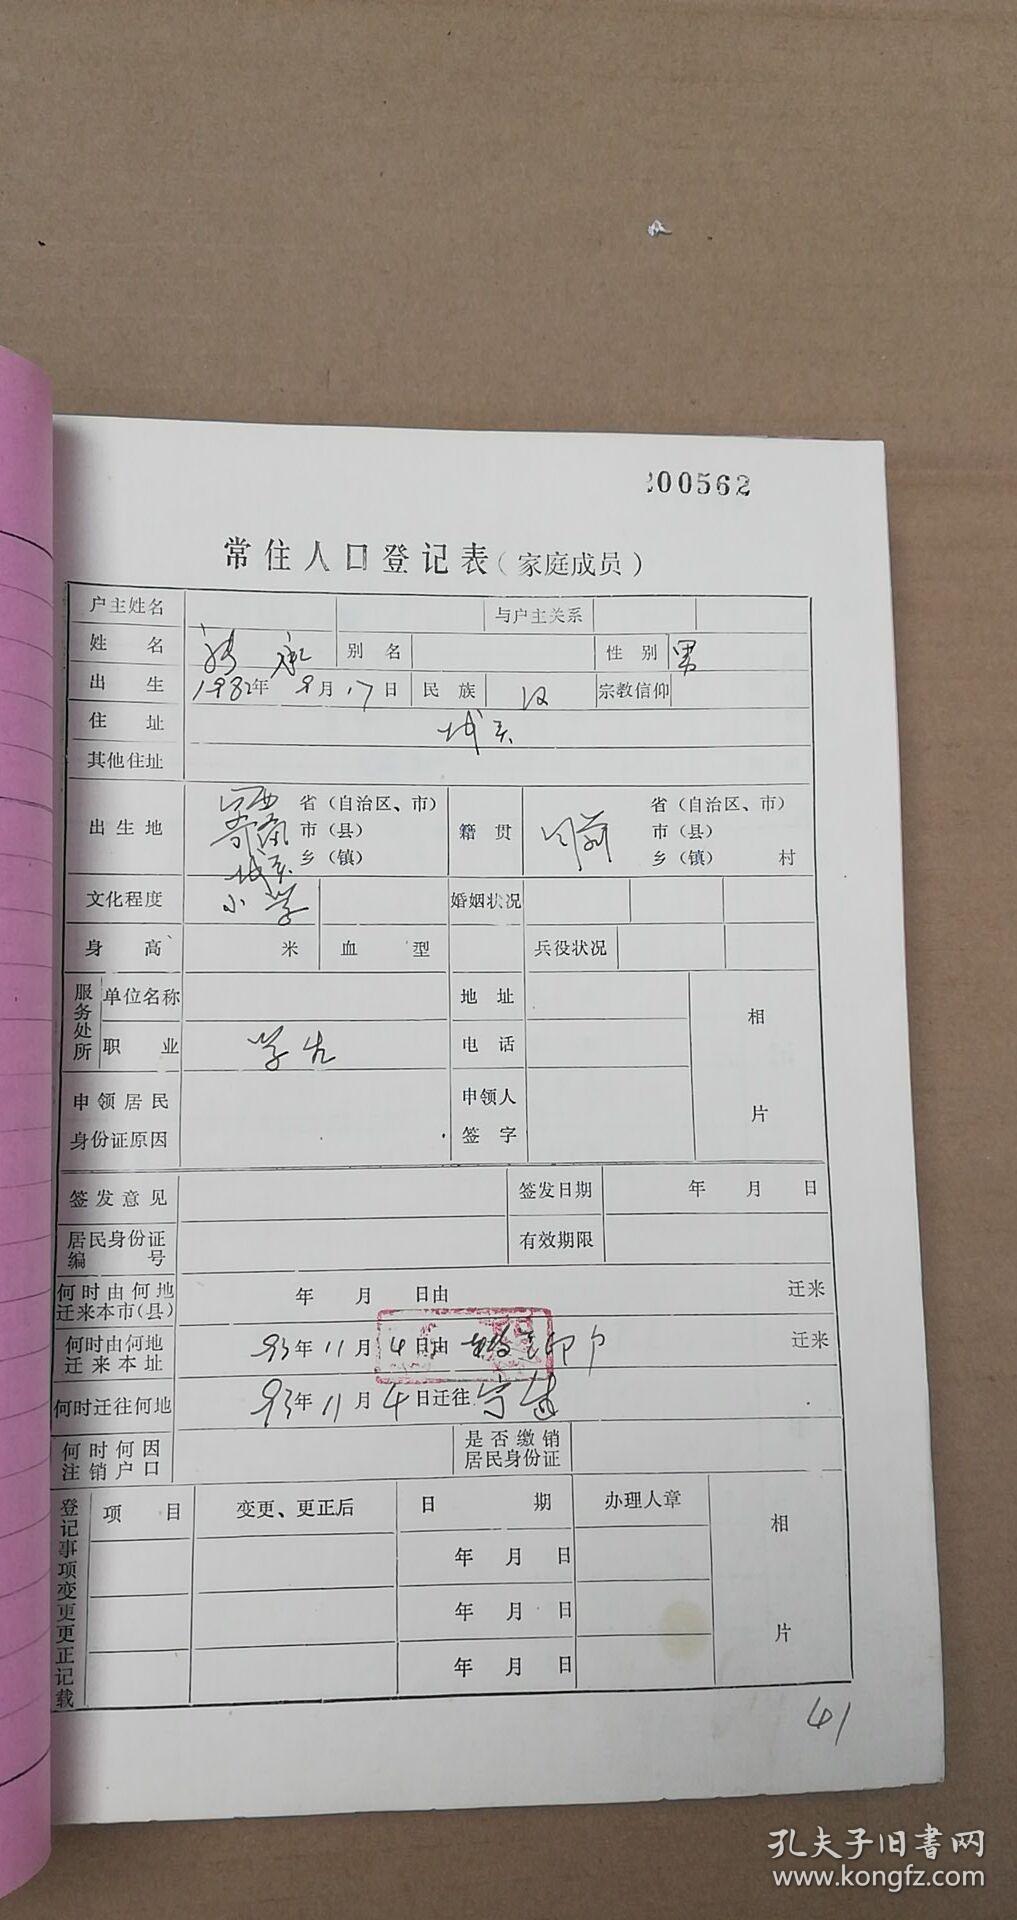 200562
常住人口登记表（家庭成员）
户主姓名 与户主关系
姓 名 别 名 性 别 男
出 生 1982年 9月17日 民 族 汉 宗教信仰
住 址 城关
其他住址
出生地 省（自治区、市） 籍 贯 省（自治区、市）
市（县） 市（县）
城关 乡（镇） 乡（镇） 村
文化程度 小学 婚姻状况
身 高 米 血 型 兵役状况
服务处所 单位名称 地 址 相
职 业 学生 电 话
申领居民 申领人 片
身份证原因 签 字
签发意见 签发日期 年 月 日
居民身份证 有效期限
编 号
何时由何地 年 月 日由 迁来
迁来本市(县)
何时由何地 93年11月4日由 迁来
迁来本址
何时迁往何地 93年11月4日迁往
何时何因 是否缴销
注销户口 居民身份证
登记事项变更更正记载 项 目 变更、更正后 日 期 办理人章 相
年 月 日
年 月 日 片
年 月 日
41
孔夫子旧书网
www.kongfz.com